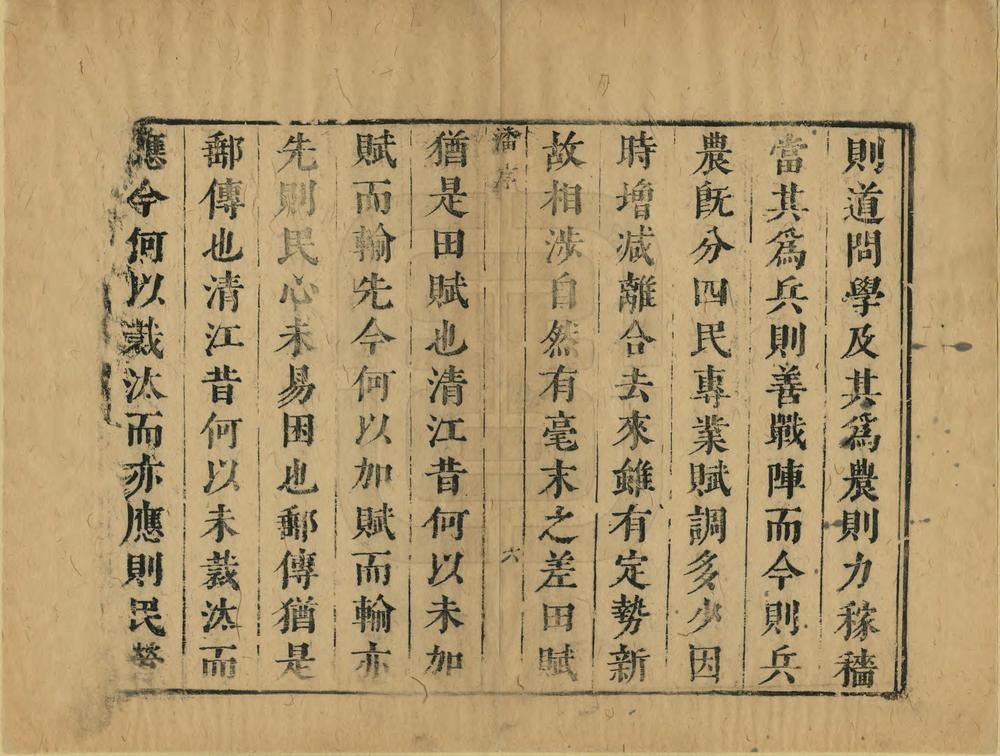 則道問學及其爲農則力稼穡
當其爲兵則善戰陣而今則兵
農旣分四民專業賦調多少因
時增减離合去來雖有定勢新
故相涉自然有毫末之差田賦
潘序
六
猶是田賦也清江昔何以未加
賦而輸先今何以加賦而輸亦
先則民心未易困也郵傳猶是
郵傳也清江昔何以未裁汰而
應今何以裁汰而亦應則民